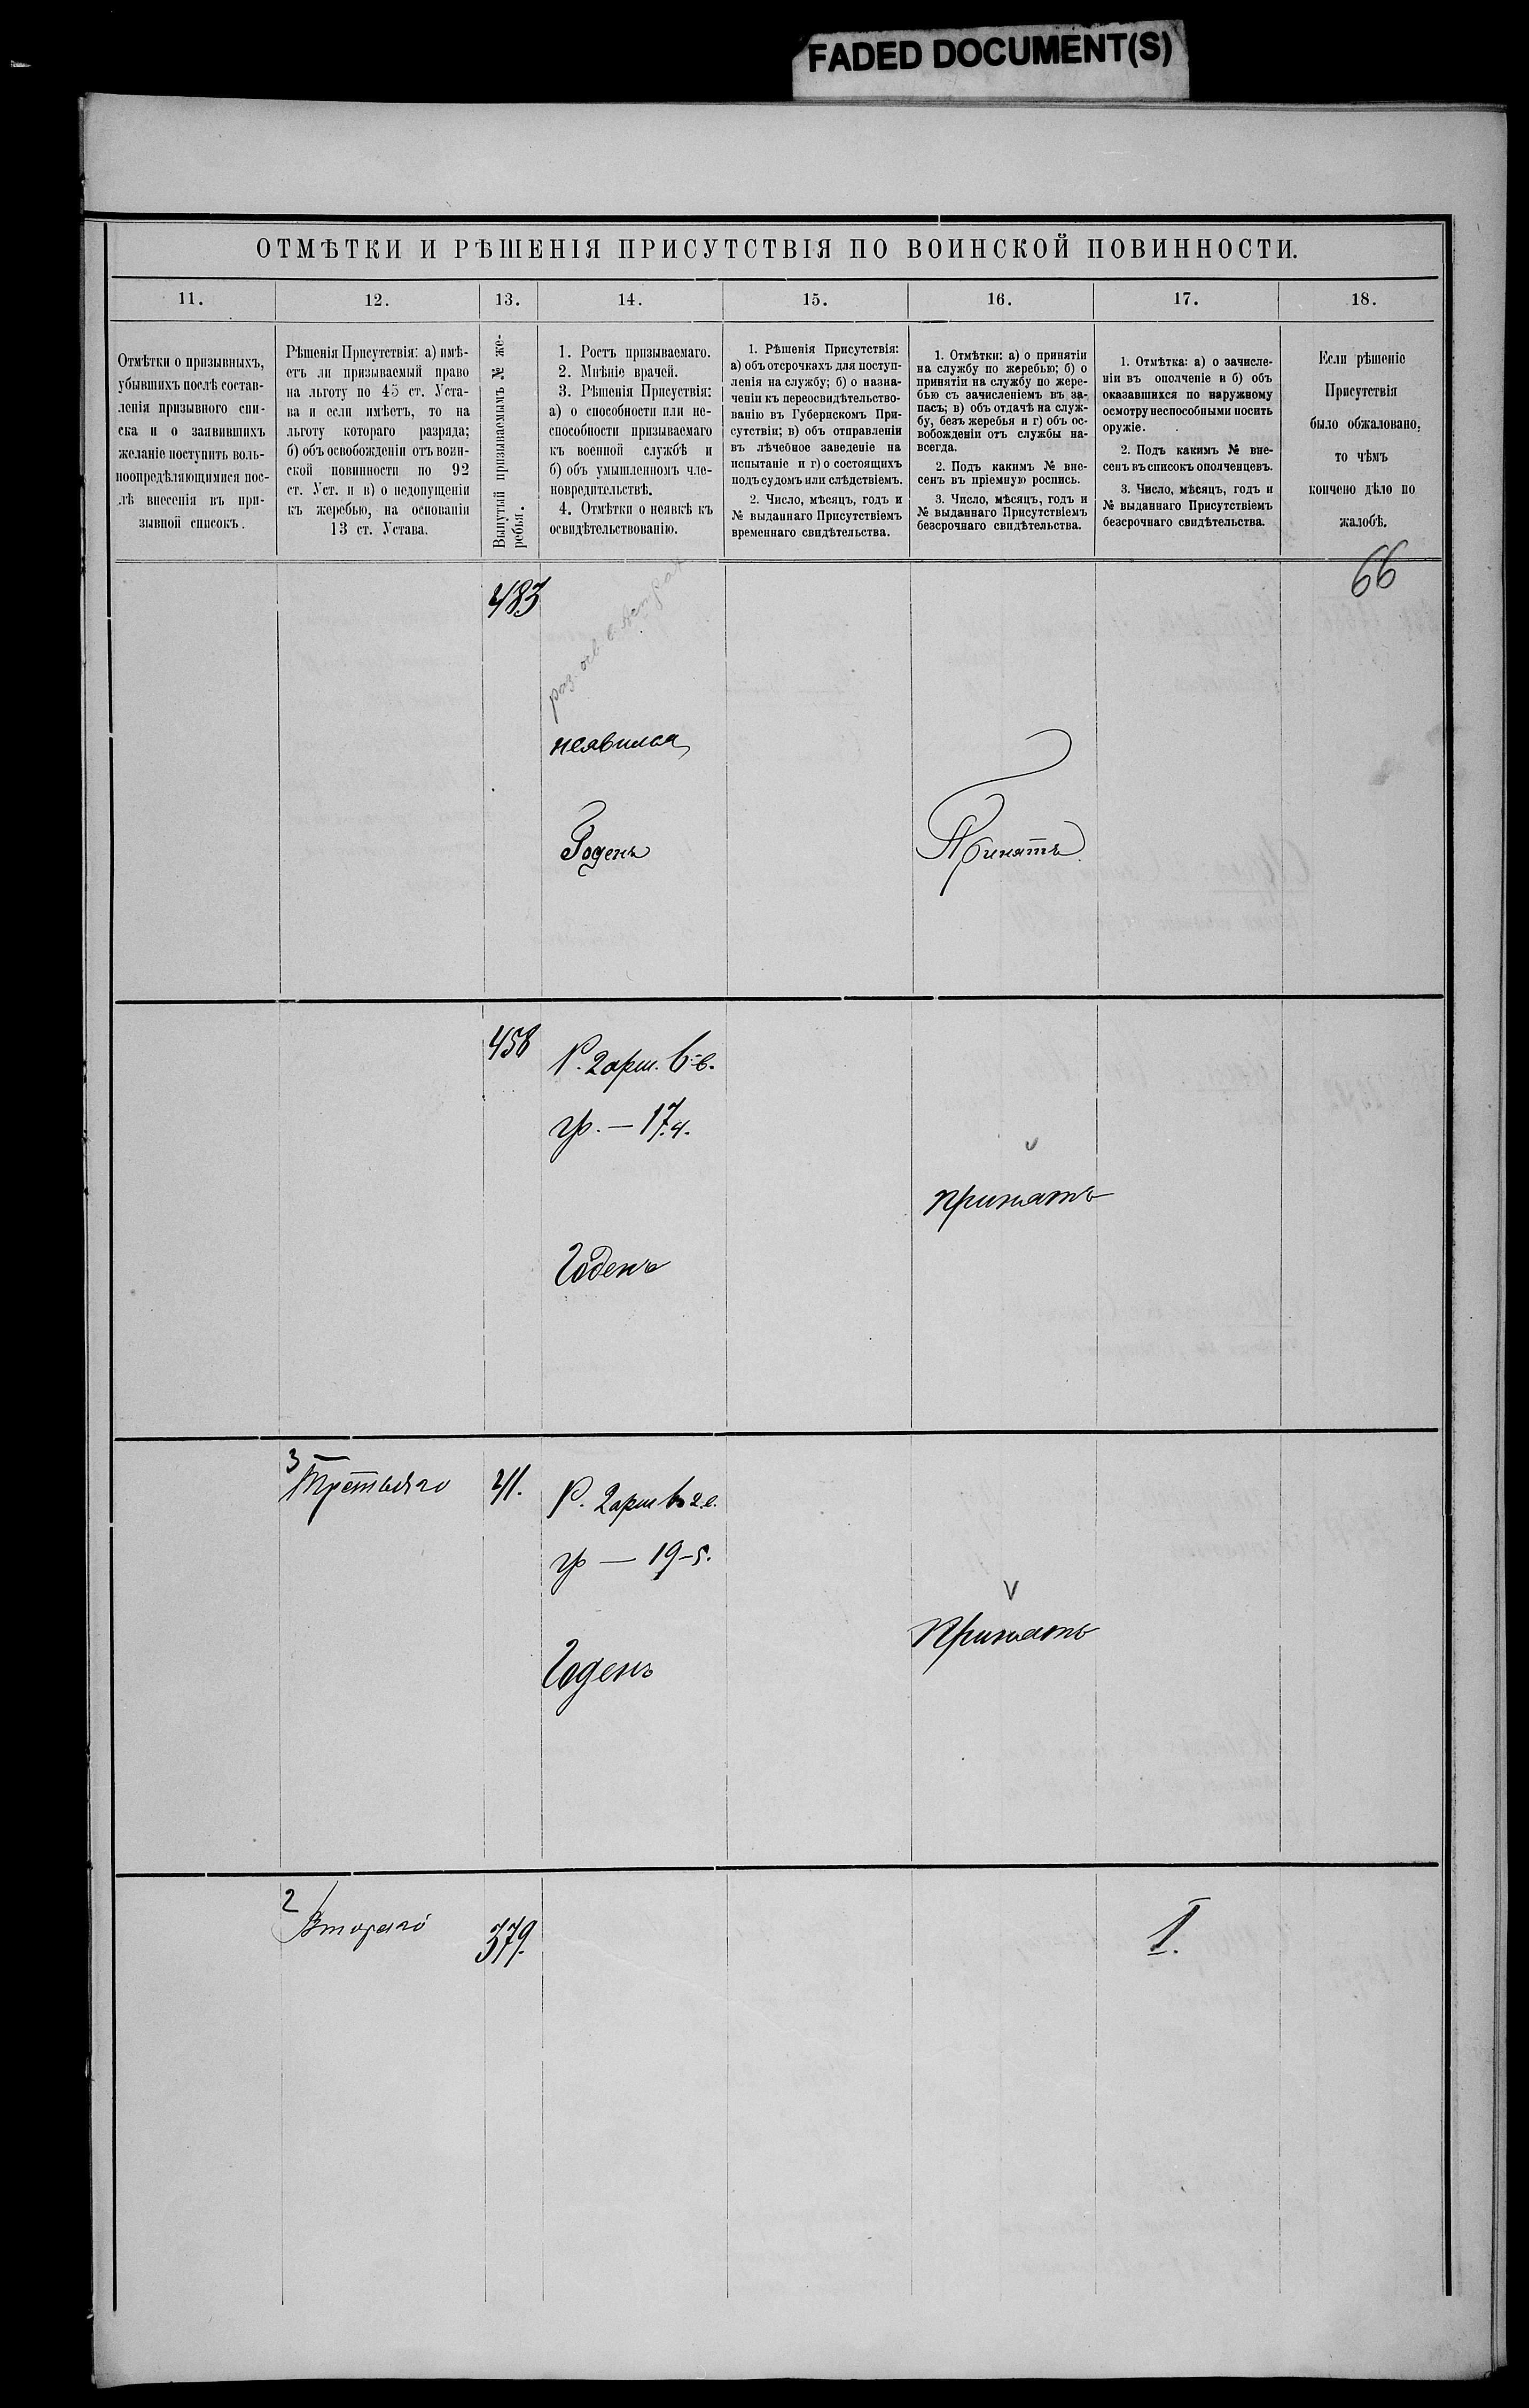 FADED DOCUMENT(S)
ОТМѢТКИ И РѢШЕНІЯ ПРИСУТСТВІЯ ПО ВОИНСКОЙ ПОВИННОСТИ.
11.
12.
13.
14.
15.
16.
17.
18.
Отмѣтки о призывныхъ,
убывшихъ послѣ состав-
ленія призывного спи-
ска и о заявившихъ
желаніе поступить воль-
ноопредѣляющимися пос-
лѣ внесенія въ при-
зывной списокъ.
Рѣшенія Присутствія: а) имѣ-
етъ ли призываемый право
на льготу по 45 ст. Уста-
ва и если имѣетъ, то на
льготу котораго разряда;
б) объ освобожденіи отъ воин-
ской повинности по 92
ст. Уст. и в) о недопущеніи
къ жеребью, на основаніи
13 ст. Устава.
Вынутый призываемымъ № же-
ребья.
1. Ростъ призываемаго.
2. Мнѣніе врачей.
3. Рѣшенія Присуствія:
а) о способности или не-
способности призываемаго
къ военной службѣ и
б) объ умышленномъ чле-
новредительствѣ.
4. Отмѣтки о неявкѣ къ
освидѣтельствованію.
1. Рѣшенія Присутствія:
а) объ отсрочкахъ для поступ-
ленія на службу; б) о назна-
ченіи къ переосвидѣтельство-
ванію въ Губернскомъ При-
сутствіи; в) объ отправленіи
въ лѣчебное заведеніе на
испытаніе и г) о состоящихъ
подъ судомъ или слѣдствіемъ.
2. Число, мѣсяцъ, годъ и
№ выданнаго Присутствіемъ
временнаго свидѣтельства.
1. Отмѣтки: а) о принятіи
на службу по жеребью; б) о
принятіи на службу по жере-
бью съ зачисленіемъ въ за-
пасъ; в) объ отдачѣ на служ-
бу, безъ жеребья и г) объ ос-
вобожденіи отъ службы на-
всегда.
2. Подъ какимъ № вне-
сенъ въ пріемную роспись.
3. Число, мѣсяцъ, годъ и
№ выданнаго Присутствіемъ
безсрочнаго свидѣтельства.
1. Отмѣтка: а) о зачисле-
ніи въ ополченіе и б) объ
оказавшихся по наружному
осмотру неспособными носить
оружіе.
2. Подъ какимъ № вне-
сенъ въ списокъ ополченцевъ.
3. Число, мѣсяцъ, годъ и
№ выданнаго Присутствіемъ
безсрочнаго свидѣтельства.
Если рѣшеніе
Присутствія
было обжаловано,
то чѣмъ
кончено дѣло по
жалобѣ.
66
483
неявился
Годенъ
Принятъ
458
Р. 2 арш. 6-в.
гр. — 17.4.
Годенъ
принятъ
3
Третьяго
41.
гр — 19-5.
Годенъ
V
Принятъ
2
Второго
379.
I.